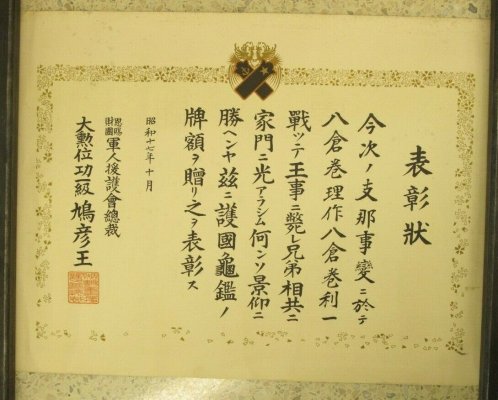 表彰狀
今次ノ支那事變ニ於テ
八倉巻理作八倉巻利一
戰ッテ王事ニ斃レ兄弟相共ニ
家門ニ光アラシム何ンソ景仰ニ
勝ヘンヤ玆ニ護國龜鑑ノ
牌額ヲ贈リ之ヲ表彰ス
昭和十七年十月
恩賜財團軍人援護會總裁
大勲位功一級鳩彦王